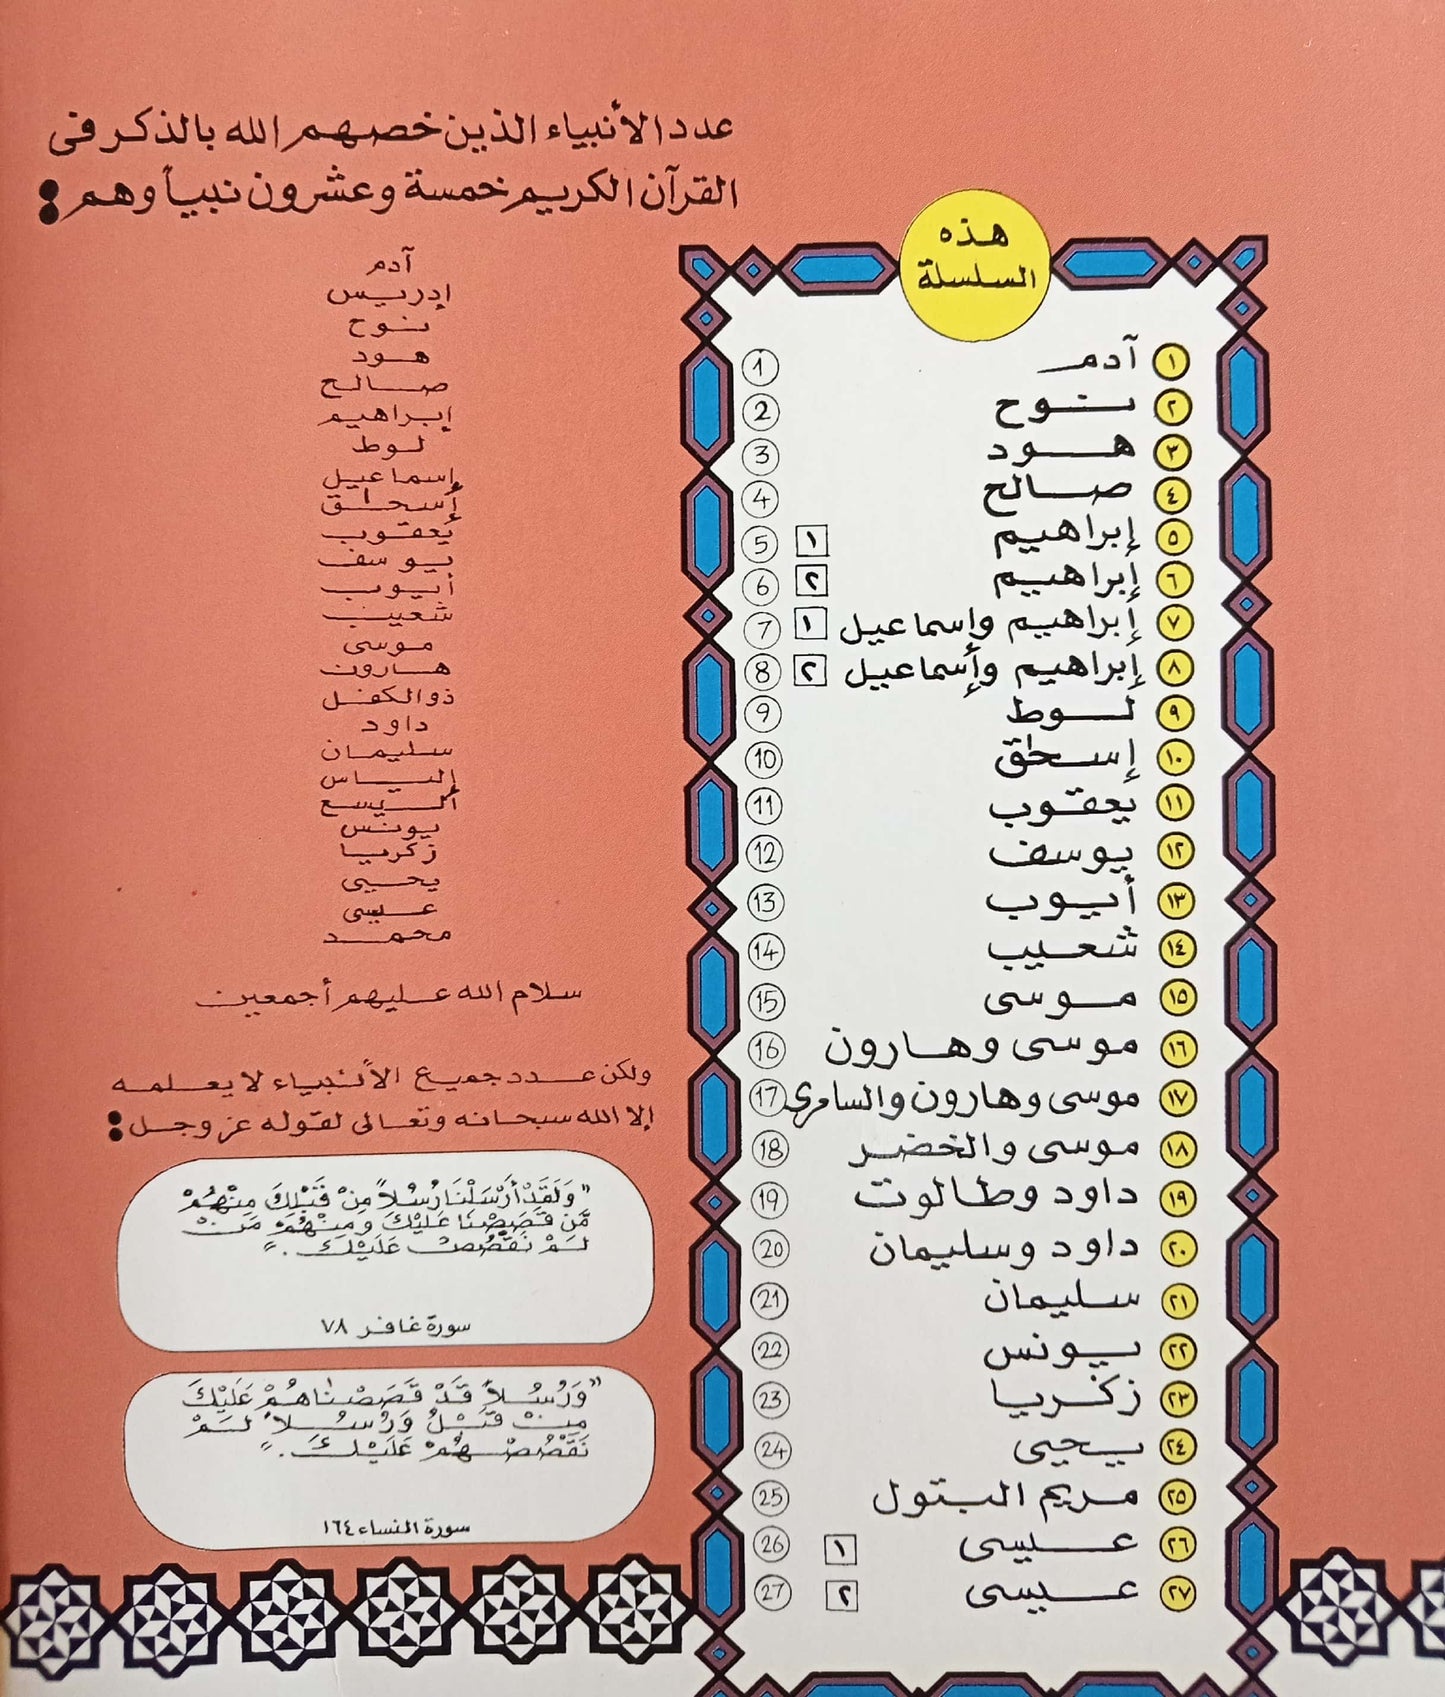 عدد الأنبياء الذين خصهم الله بالذكر فى
القرآن الكريم خمسة وعشرون نبياً وهم :
آدم
إدريس
نوح
هود
صالح
إبراهيم
لوط
إسماعيل
إسحاق
يعقوب
يوسف
أيوب
شعيب
موسى
هارون
ذو الكفل
داود
سليمان
إلياس
أليسع
يونس
زكريا
يحيى
عيسى
محمد
سلام الله عليهم أجمعين
ولكن عدد جميع الأنبياء لا يعلمه
إلا الله سبحانه وتعالى لقوله عز وجل :
"وَلَقَدْ أَرْسَلْنَا رُسُلاً مِنْ قَبْلِكَ مِنْهُمْ
مَّن قَصَصْنَا عَلَيْكَ وَمِنْهُمْ مَنْ
لَمْ نَقْصُصْ عَلَيْكَ ."
سورة غافر ٧٨
"وَرُسُلاً قَدْ قَصَصْنَاهُمْ عَلَيْكَ
مِنْ قَبْلُ وَرُسُلاً لَمْ
نَقْصُصْهُمْ عَلَيْكَ ."
سورة النساء ١٦٤
هذه
السلسلة
١ آدم 1
٢ نوح 2
٣ هود 3
٤ صالح 4
٥ إبراهيم ١ 5
٦ إبراهيم ٢ 6
٧ إبراهيم وإسماعيل ١ 7
٨ إبراهيم وإسماعيل ٢ 8
٩ لوط 9
١٠ إسحق 10
١١ يعقوب 11
١٢ يوسف 12
١٣ أيوب 13
١٤ شعيب 14
١٥ موسى 15
١٦ موسى وهارون 16
١٧ موسى وهارون والسامرى 17
١٨ موسى والخضر 18
١٩ داود وطالوت 19
٢٠ داود وسليمان 20
٢١ سليمان 21
٢٢ يونس 22
٢٣ زكريا 23
٢٤ يحيى 24
٢٥ مريم البتول 25
٢٦ عيسى ١ 26
٢٧ عيسى ٢ 27